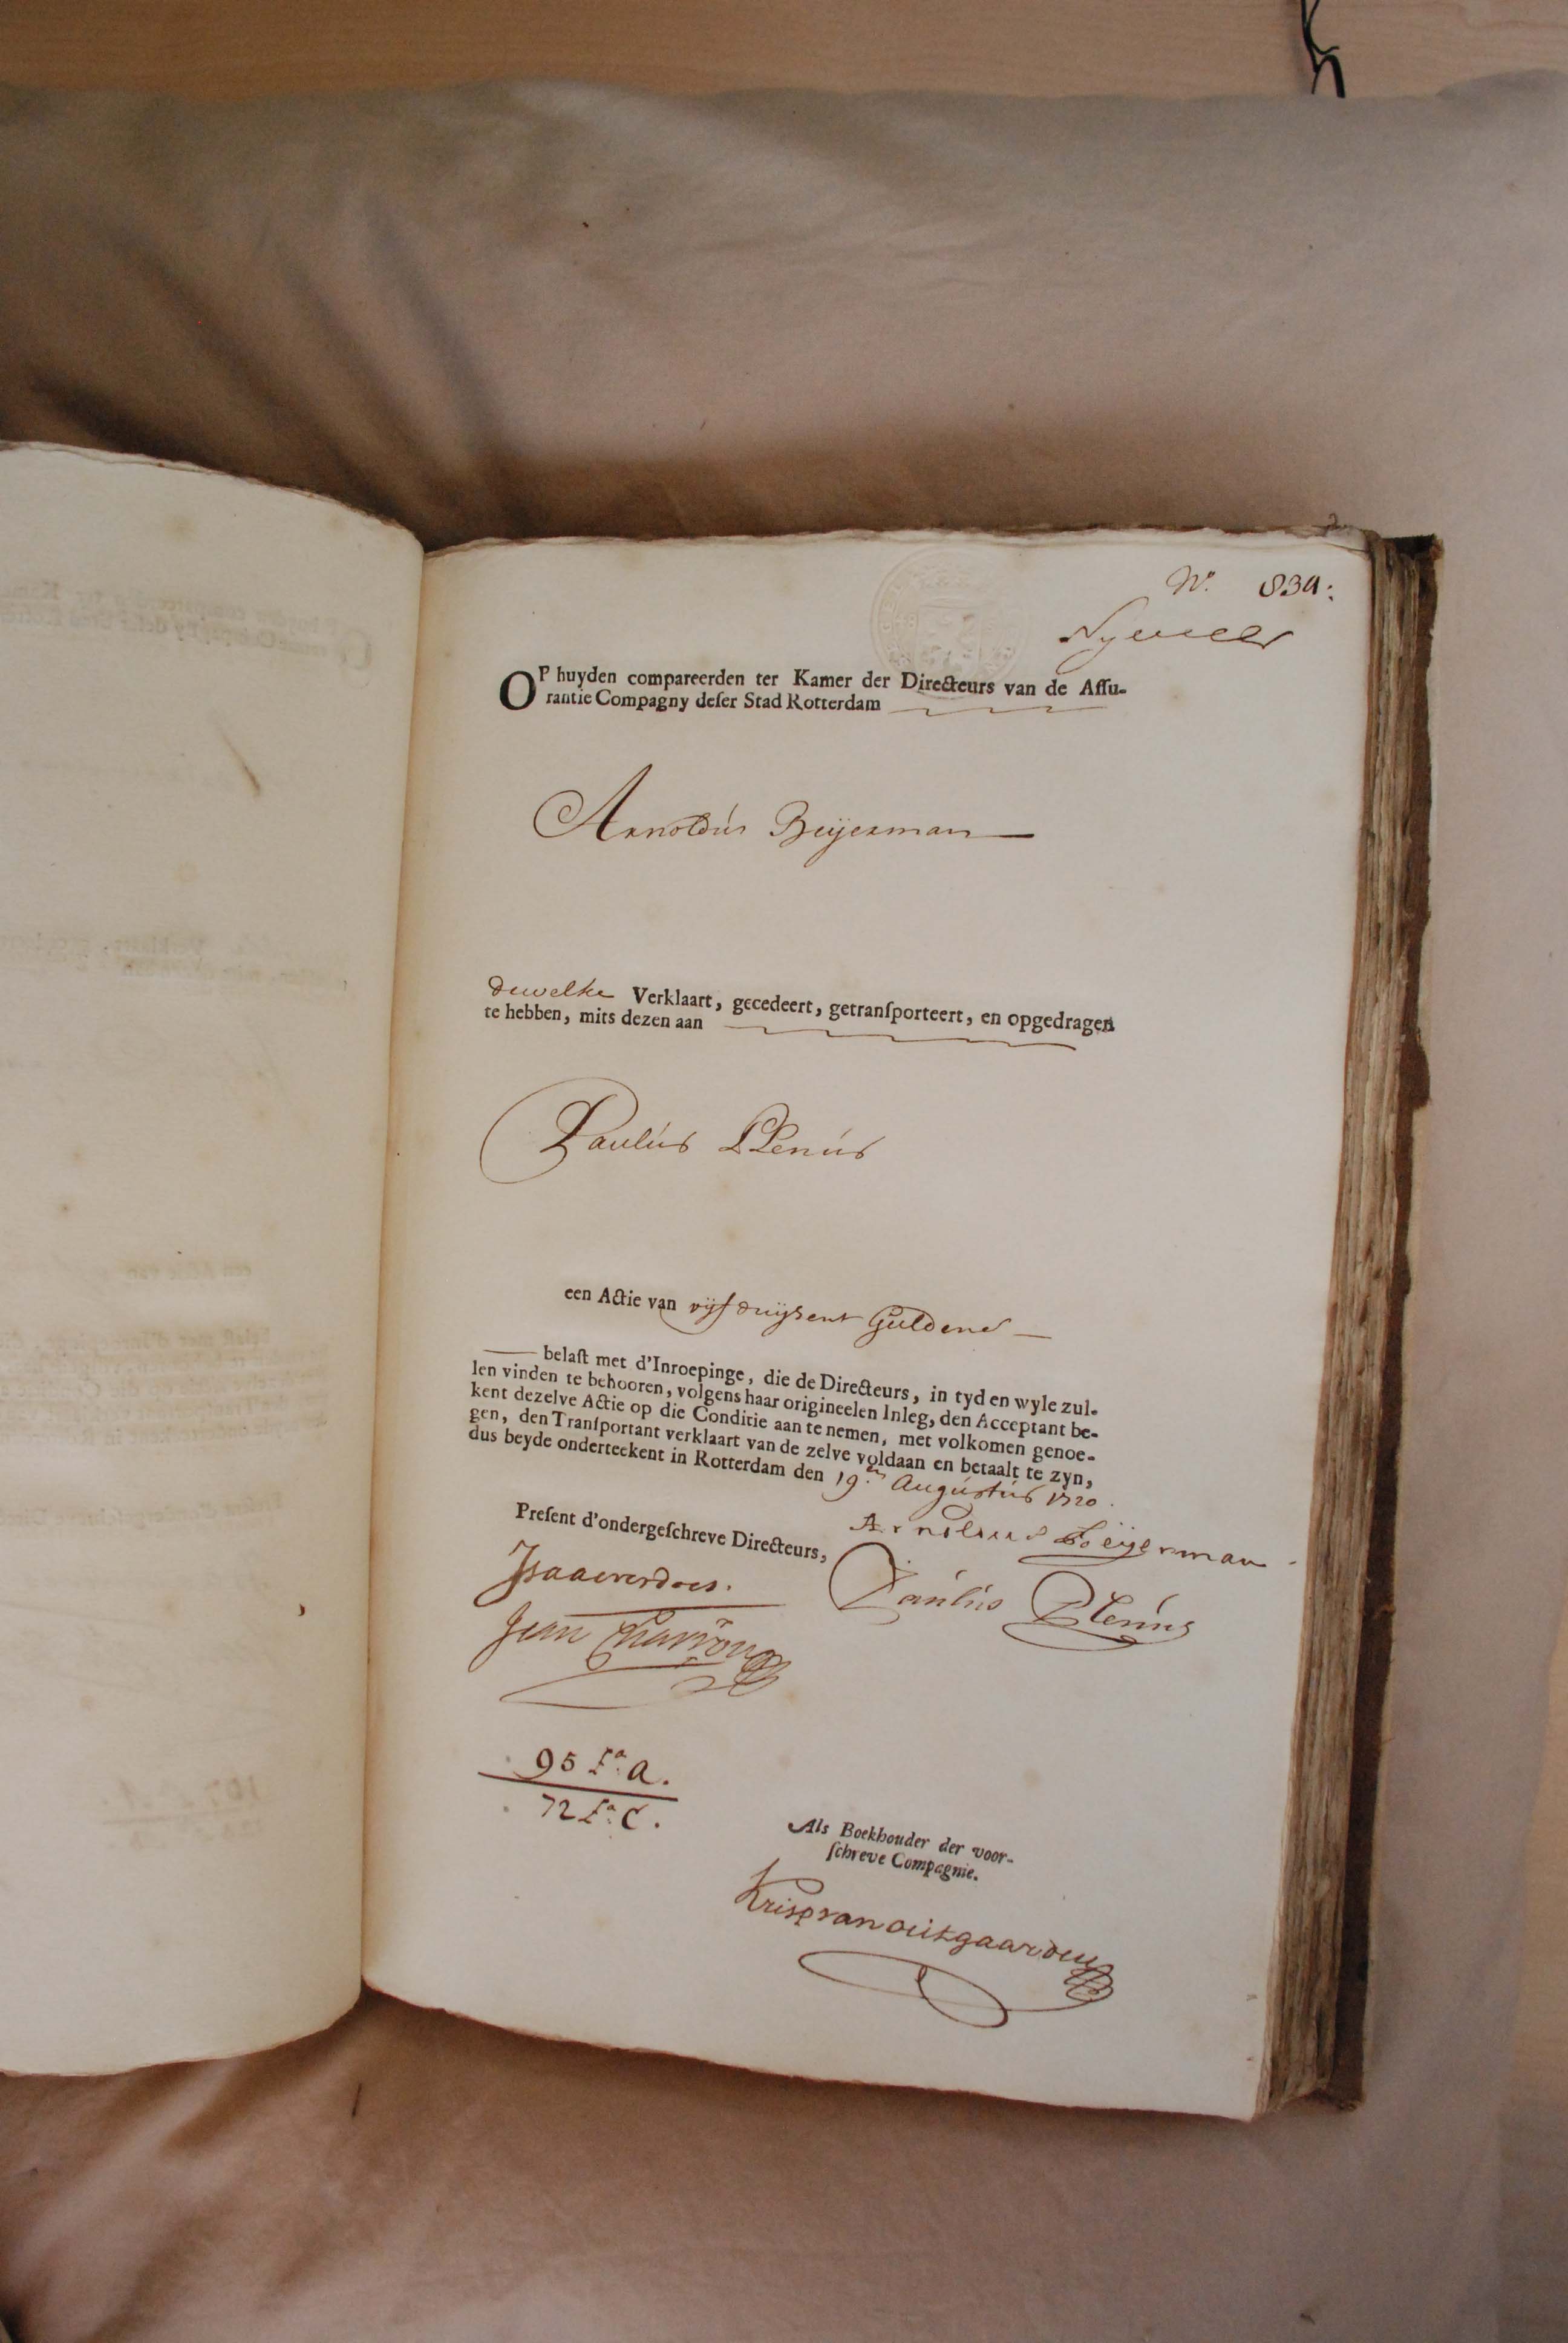 No. 839:
OP huyden compareerden ter Kamer der Directeurs van de Aſſu-
rantie Compagny deſer Stad Rotterdam
Arnoldús Beijerman
dewelke Verklaart, gecedeert, getranſporteert, en opgedragen
te hebben, mits dezen aan
Paulús Plenús
een Actie van vijf duijsent Guldens
belaſt met d'Inroepinge, die de Directeurs, in tyd en wyle zul-
len vinden te behooren, volgens haar origineelen Inleg, den Acceptant be-
kent dezelve Actie op die Conditie aan te nemen, met volkomen genoe-
gen, den Tranſportant verklaart van de zelve voldaan en betaalt te zyn,
dus beyde onderteekent in Rotterdam den 19.en Augústús 1720.
Preſent d'ondergeſchreve Directeurs,
Arnoldus Beijerman
Isaac verdoes.
Paulús Plenús
Jean Charron
95 Fo. A.
72 Fo. C.
Als Boekhouder der voor-
ſchreve Compagnie.
Krisp van outgaarden